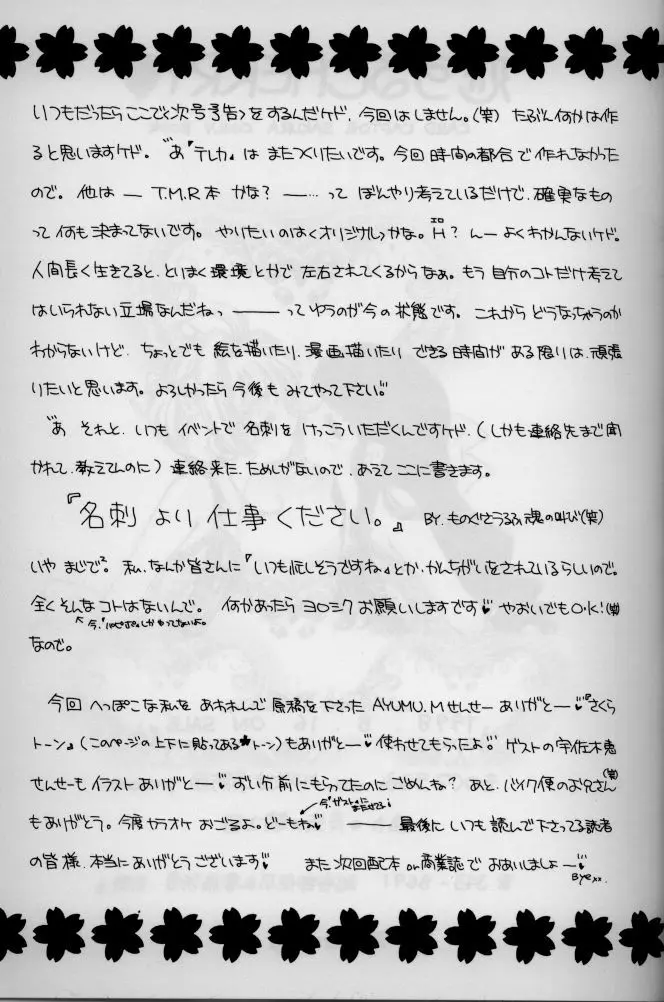 いつもだったらここで<次号予告>をするんだケド、今回はしません。(笑) たぶん何かは作
ると思いますケド。"あ『テレカ』は またつくりたいです。今回 時間の都合で作れなかった
ので。他は ― T.M.R本 かな? ―…って ぼんやり考えているだけで、確実なもの
って何も決まってないです。やりたいのは<オリジナル>かな。
エロ
H? んーよくわかんないケド。
人間長く生きてると、とりまく環境とかで左右されてくるからなぁ。もう自分のコトだけ考えて
はいられない立場なんだねっ ――― ってゆうのが今の状態です。これからどうなっちゃうのか
わからないけど、ちょっとでも 絵を描いたり、漫画描いたり できる時間が ある限りは、頑張
りたいと思います。よろしかったら今後も みてやって下さい!!
"あ それと、いつも イベントで 名刺を けっこういただくんですケド、(しかも連絡先まで聞
かれて、教えてんのに) 連絡来た、ためしがないので、あえて ここに書きます。
『名刺 より 仕事ください。』 BY.ものぐさうるふ 魂の叫び(笑)
いや まじで。私、なんか皆さんに『いつも忙しそうですね』とか、かんちがいをされているらしいので。
全くそんなコトはないんで。何かあったら ヨロシク お願いしますです♥ やおいでもO・K!(笑)
なので。
今回 へっぽこな私を あわれんで 原稿を下さった AYUMU.Mせんせー ありがとー♥『さくら
トーン』(このページの上下に貼ってあるトーン)もありがとー♥使わせてもらったよ!! ゲストの宇佐木恵
せんせーもイラスト ありがとー♥ ずい分前にもらってたのにごめんね? あと、バイク便のお兄さん(笑)
もありがとう。今度カラオケ おごるよ。どーもね♥ ――― 最後に いつも 読んで下さってる読者
の皆様、本当にありがとうございます♥ また次回配本 or 商業誌で おあいしましょー♥
Bye xx.